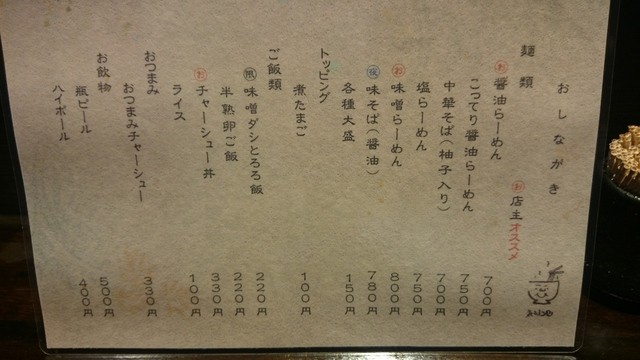 おしながき
お 店主オススメ
麺類
お 醤油らーめん 700円
こってり醤油らーめん 750円
中華そば(柚子入り) 700円
塩らーめん 750円
お 味噌らーめん 800円
味そば(醤油) 780円
各種大盛 150円
トッピング
煮たまご 100円
ご飯類
限 味噌ダシとろろ飯 220円
半熟卵ご飯 220円
お チャーシュー丼 330円
ライス 100円
おつまみ
おつまみチャーシュー 330円
お飲物
瓶ビール 500円
ハイボール 400円